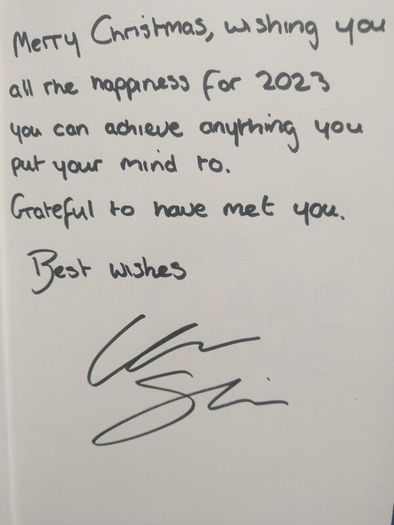 Merry Christmas, wishing you
all the happiness for 2023
you can achieve anything you
put your mind to.
Grateful to have met you.
Best wishes